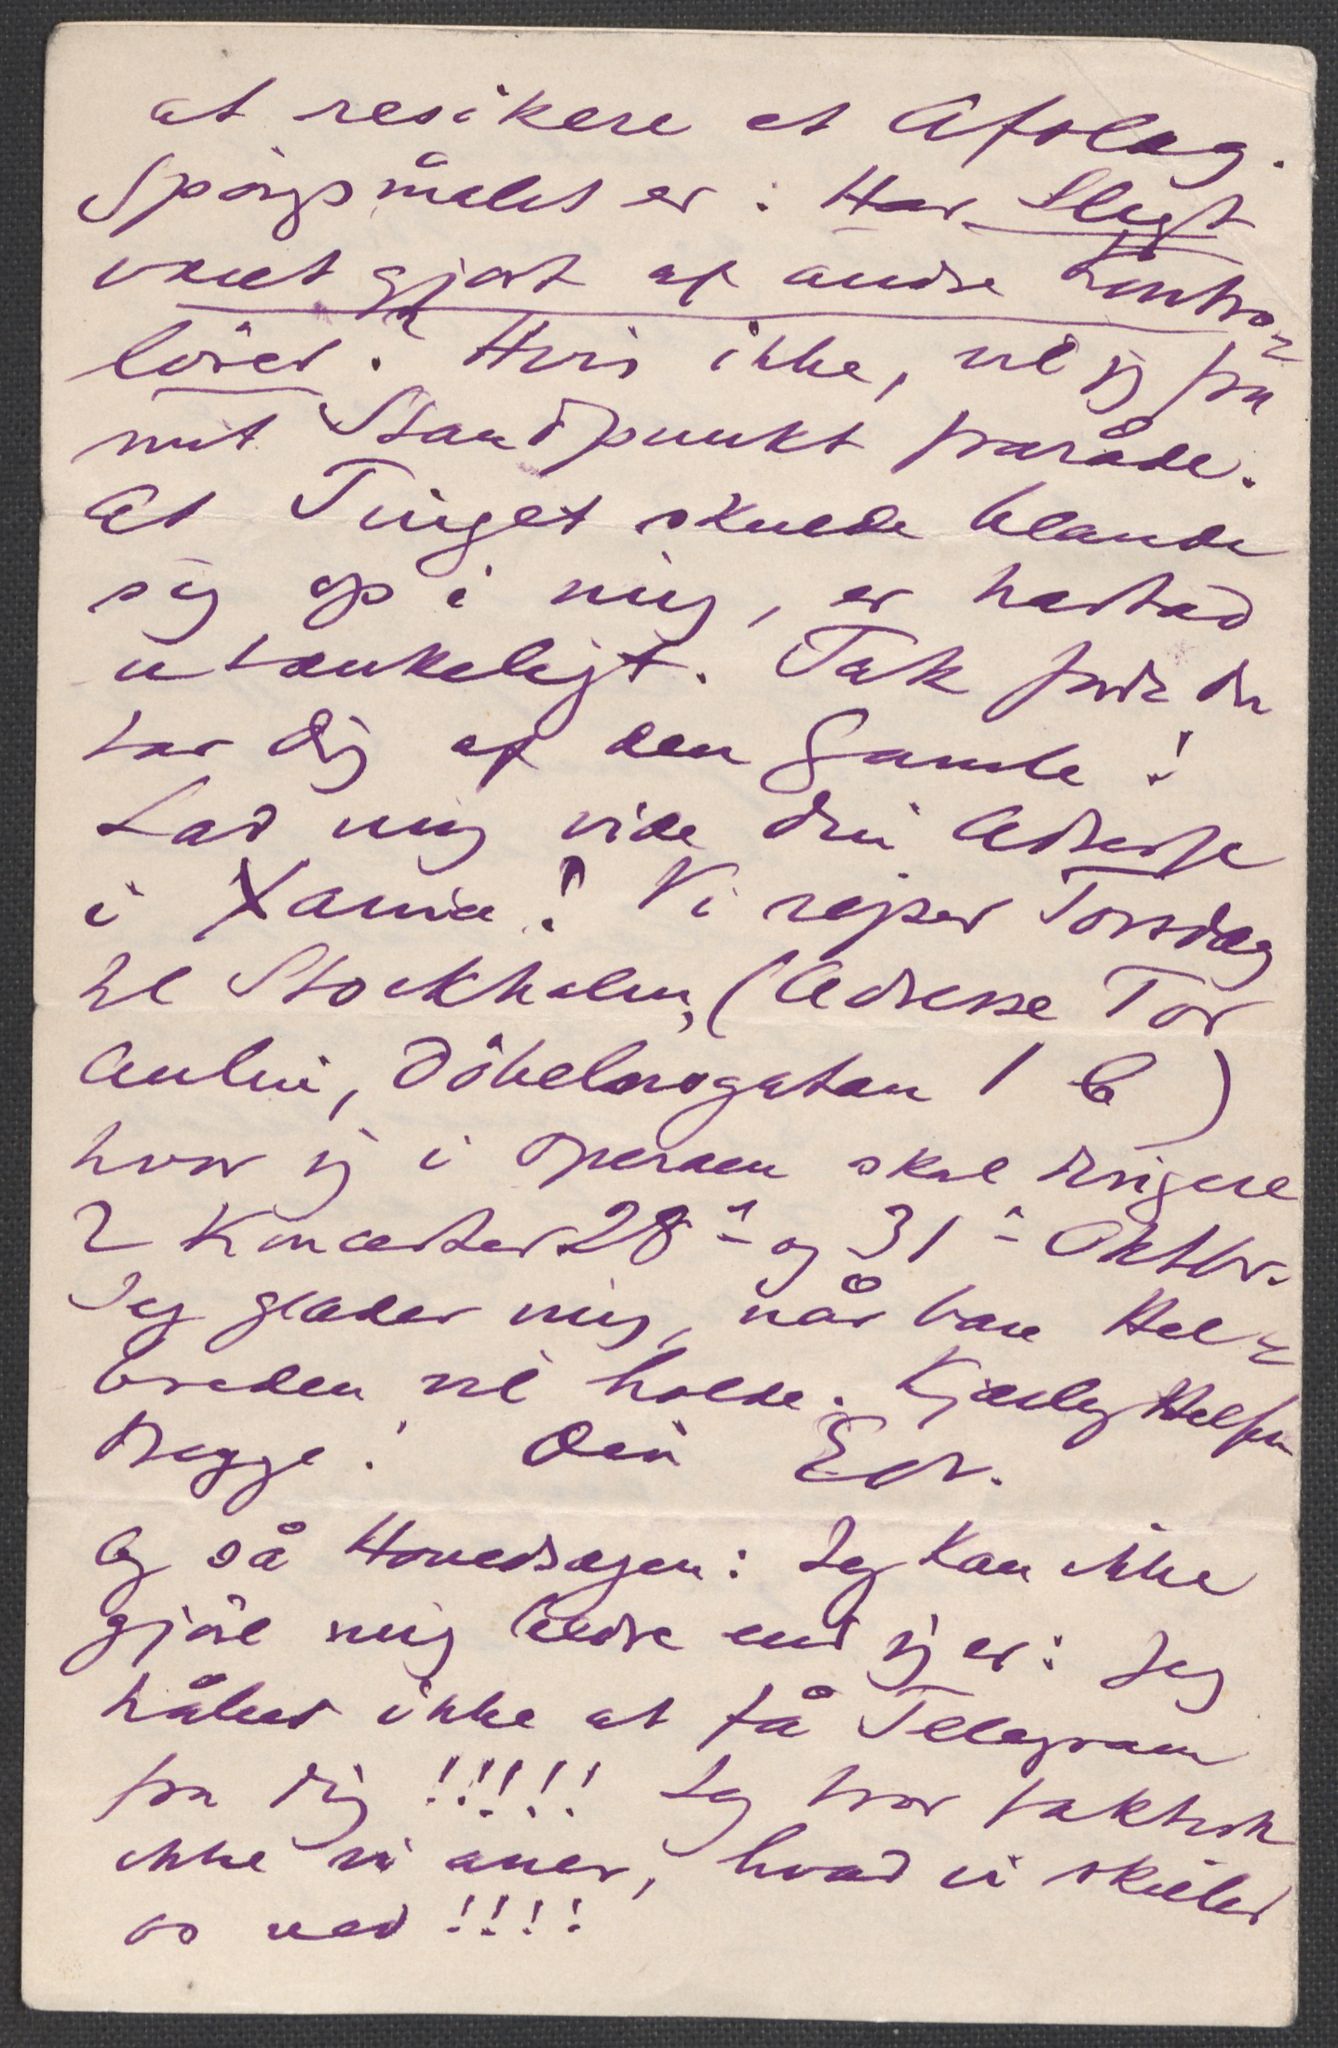 at resikere et Afslag.
Spörgsmålet er: Har Sligt
været gjort af andre Kontro-
lörer? Hvis ikke, vil jeg fra
mit Standpunkt fraråde.
At Tinget skulde blande
sig op i mig, er hartad
utænkeligt. Tak fordi du
tar dig af den Gamle!
Lad mig vide din Adresse
i Xania! Vi rejser Torsdag
til Stockholm, (Adresse Tor
Aulin, Döbelnsgatan 1 b)
hvor jeg i Operaen skal dirigere
2 Koncerter 28- og 31- Oktbr.
Jeg glæder mig, når bare Hel-
breden vil holde. Kjærlig Hilsen
Begge! Din Edv.
Og så Hovedsagen: Jeg kan ikke
gjöre mig bedre end jeg er: Jeg
tåler ikke at få Telegram
fra dig!!!!! Jeg tror faktisk
ikke vi aner, hvad vi skiller
os ved!!!!